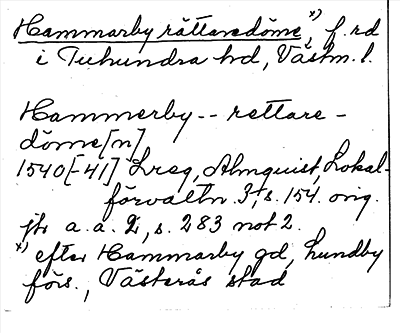 Hammarby rättaredöme, x) f. rd
i Tuhundra hd, Västm. l.
Hammerby -- rettare-
döme[n]
1540[-41] Lreg, Almquist, Lokal-
förvaltn 3, s. 154. orig.
jfr a. a. 2, s. 283 not 2.
x) efter Hammarby gd, Lundby
förs., Västerås stad